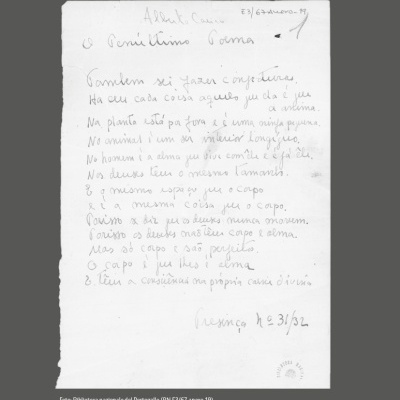 Albert. Caeiro
E3/67 anexo-19
1
O Penúltimo Poema
Tambem sei fazer conjecturas.
Ha em cada coisa aquelo que ella é que
a anima.
Na planta está pa fora e é uma nimpha pequena.
No animal é um ser interior longiquo.
No homem é a alma que vive com êle e é já êle.
Nos deuses tem o mesmo tamanho
E o mesmo espaço que o corpo
E é a mesma coisa que o corpo.
Porisso se diz que os deuses nunca morrem.
Porisso os deuses não têm corpo e alma
Mas só corpo e são perfeitos.
O corpo é que lhes é alma
E têm a consciência na própria carne divina
Presença Nº 31/32
Foto: Biblioteca nazionale del Portogallo (BN E3/67 anexo 19)